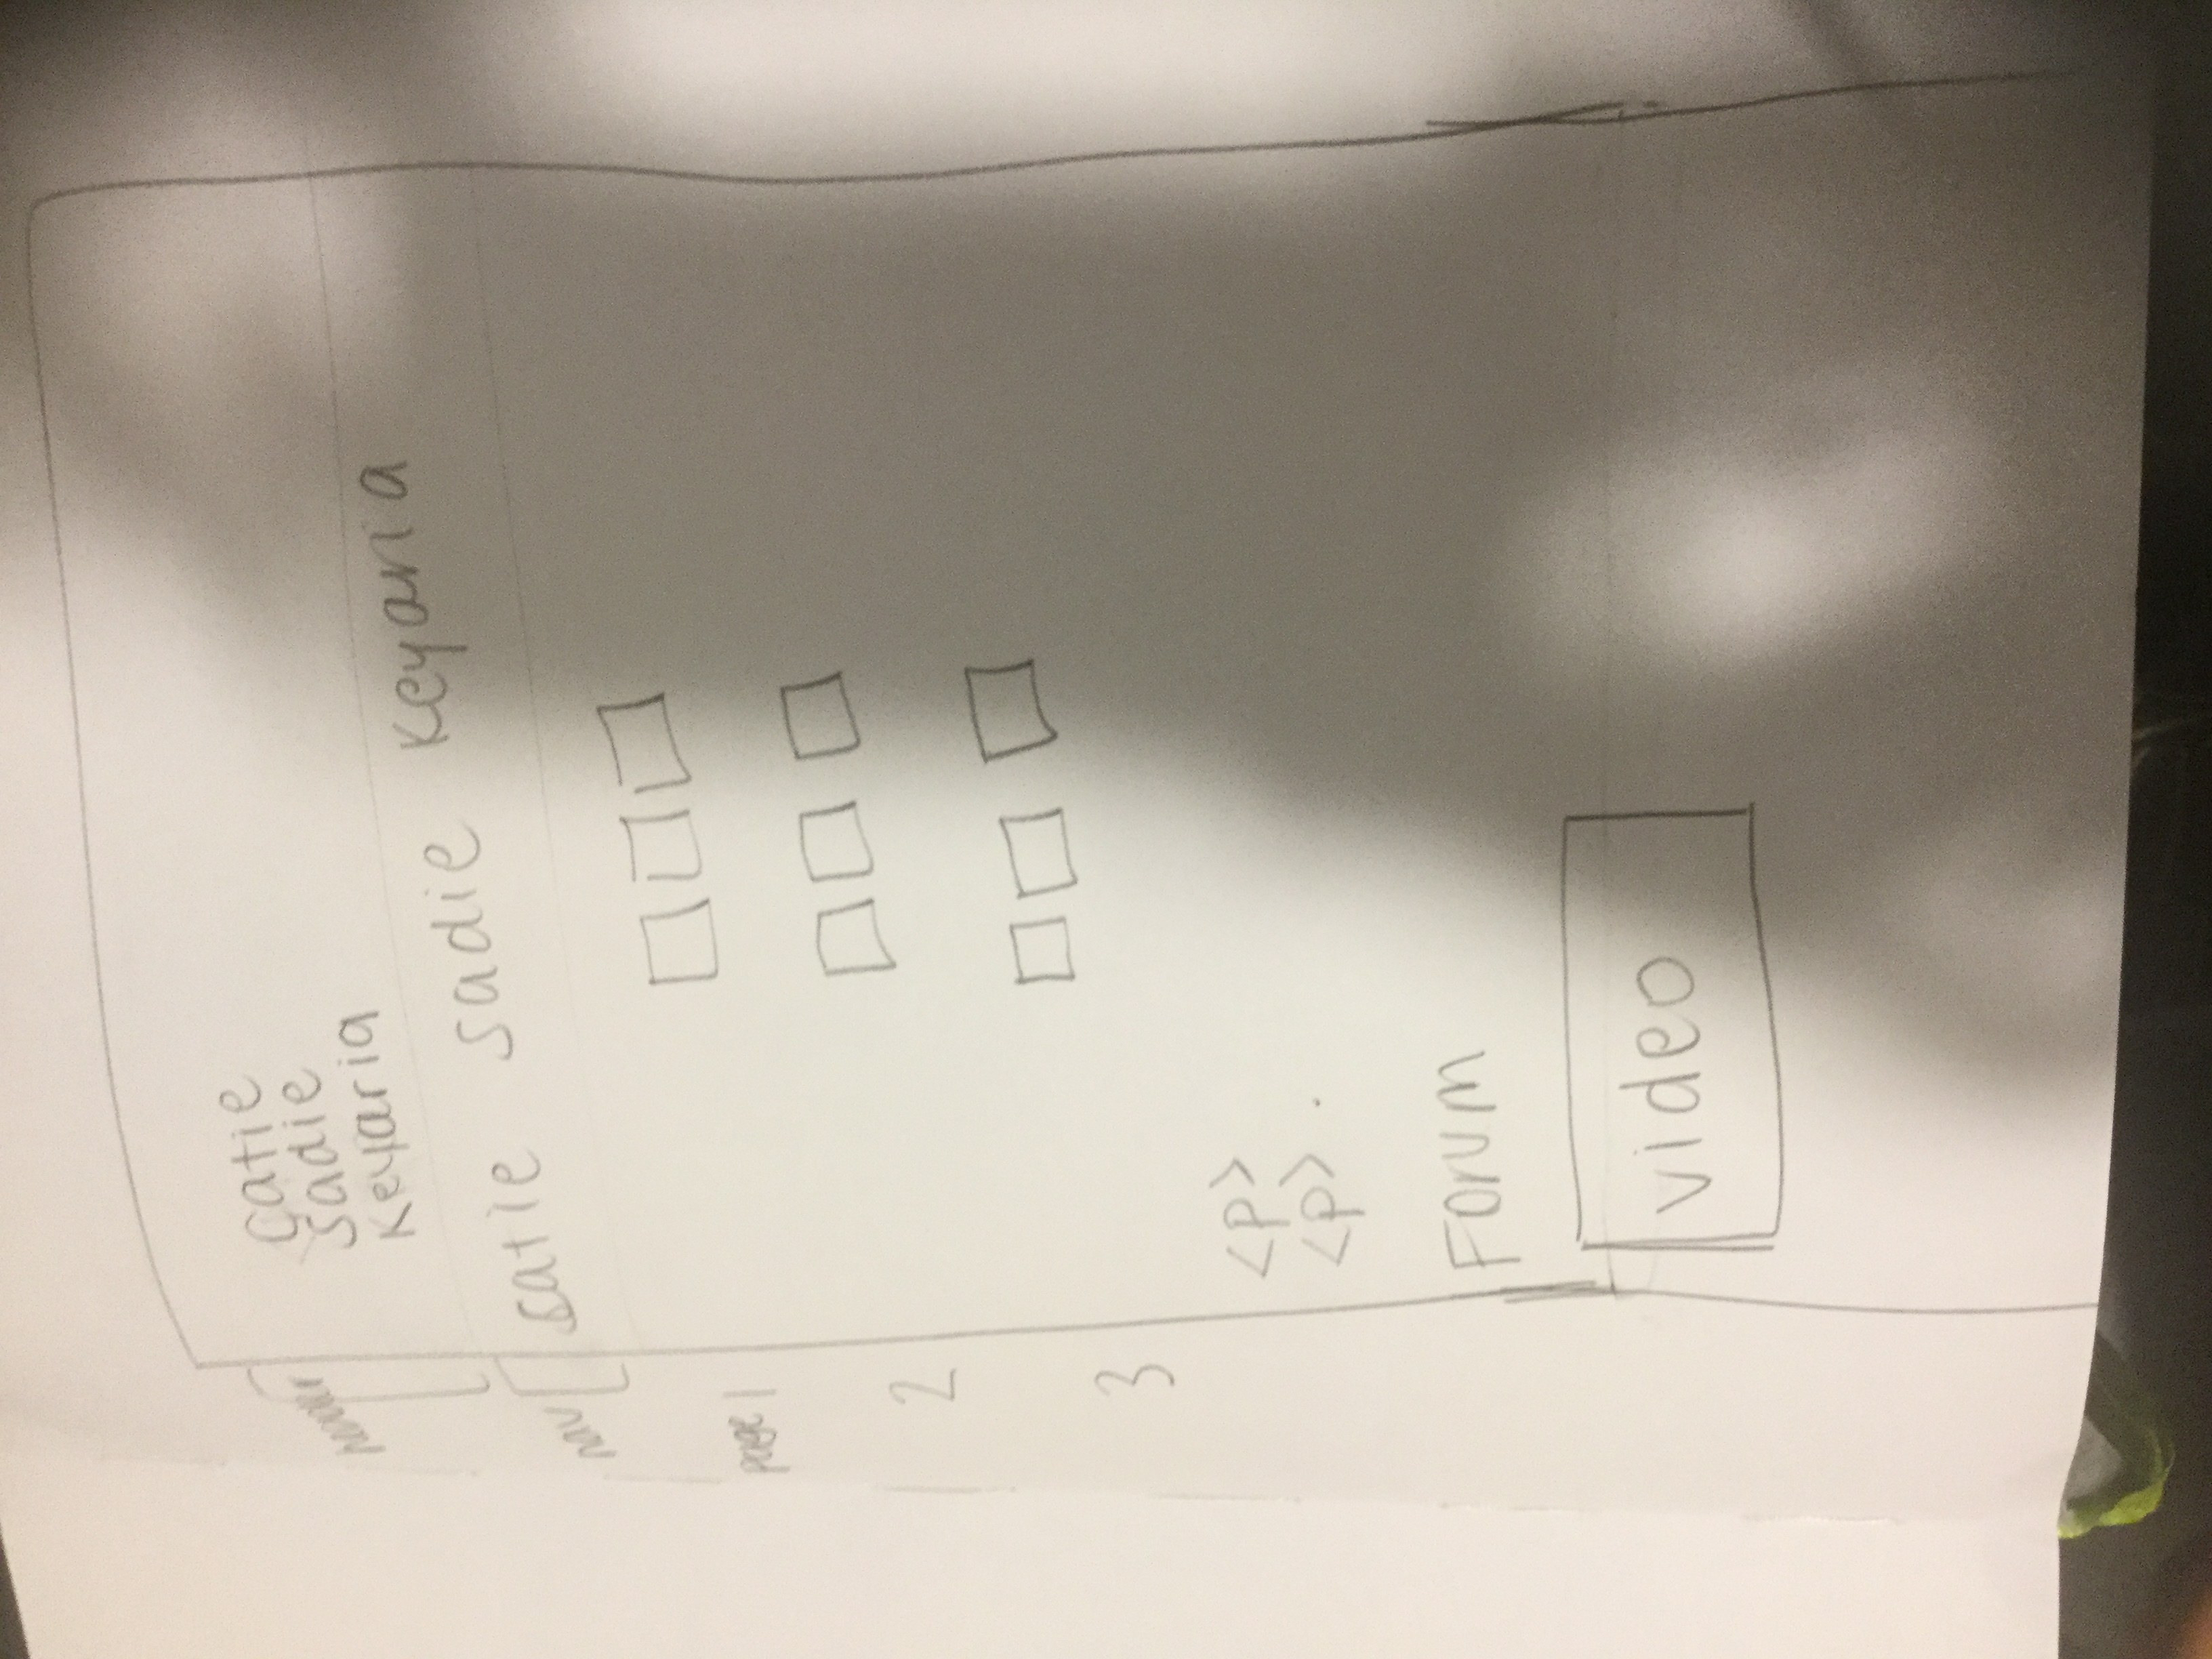 header
Catie
Sadie
Keyaria
nav
Catie Sadie Keyaria
page 1
2
3
<p>
<p> .
Forum
video